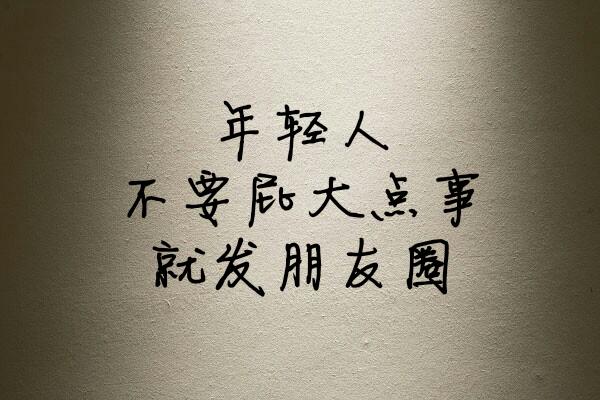 年轻人
不要屁大点事
就发朋友圈